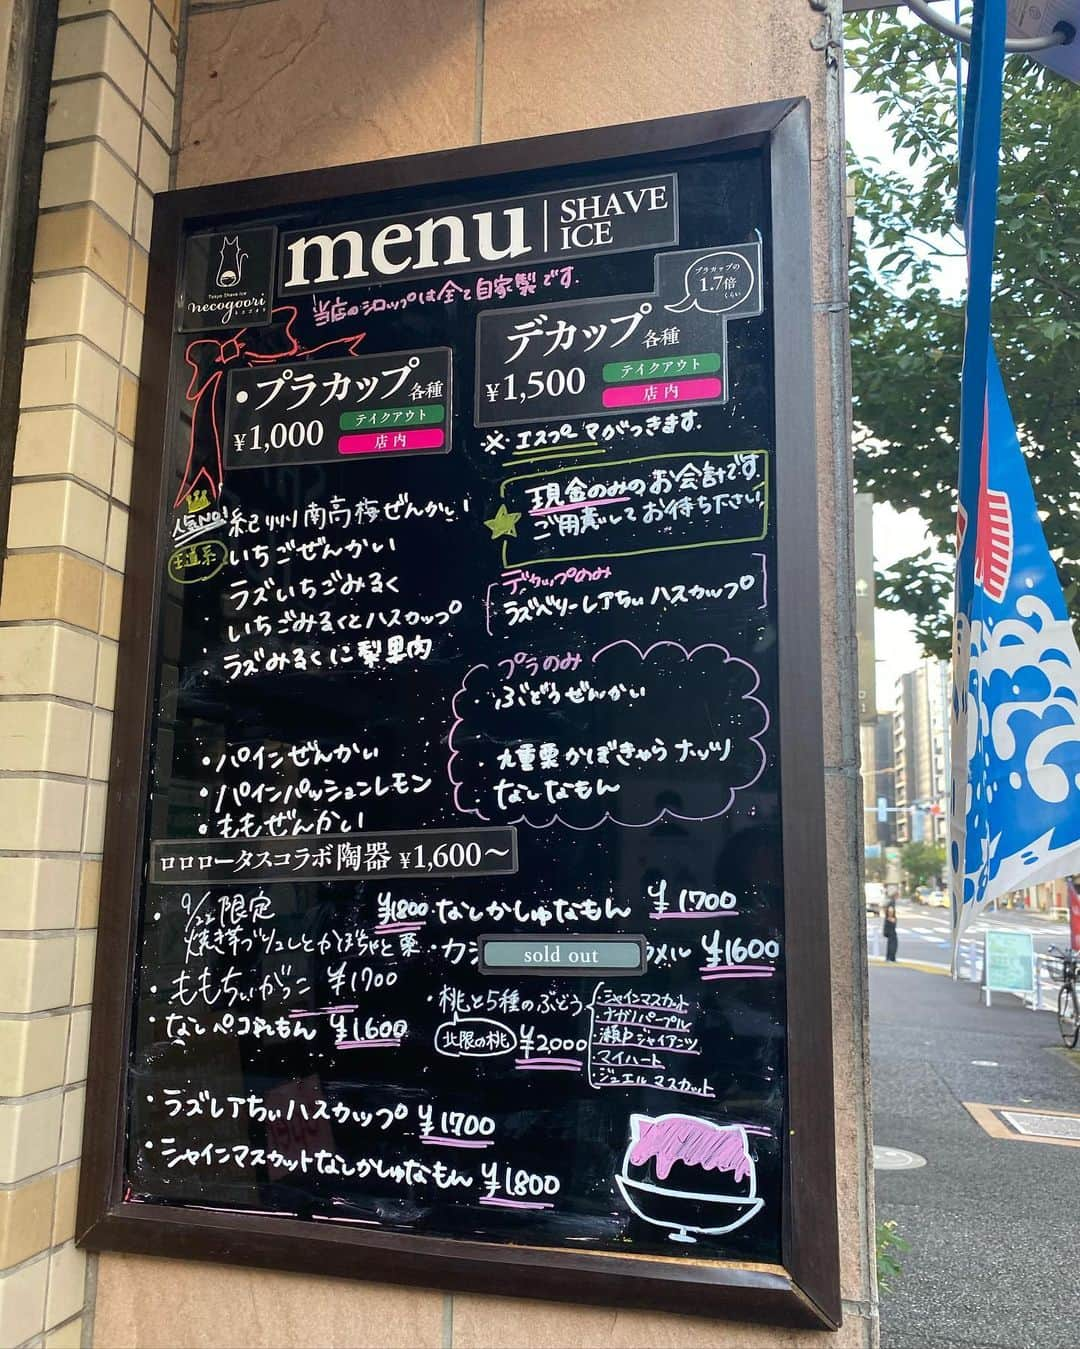 menu
SHAVE
ICE
Tokyo Shave Ice
necogoori
当店のシロップは全て自家製です.
プラカップの
1.7倍
くらい
・プラカップ各種
¥1,000
テイクアウト
店内
デカップ各種
¥1,500
テイクアウト
店内
※エスプーマがつきます.
現金のみのお会計です
ご用意してお待ち下さい
人気NO!
王道系
紀州南高梅ぜんかい
いちごぜんかい
ラズいちごみるく
・いちごみるくとハスカップ
・ラズみるくに梨果肉
・パインぜんかい
・パインパッションレモン
・ももぜんかい
デカップのみ
ラズベリーレアちぃハスカップ
プラのみ
・ぶどうぜんかい
・九重栗かぼきゃらナッツ
・なしなもん
ロロロータスコラボ陶器 ¥1,600〜
・9/22限定
焼き芋ブリュレとかぼちゃと栗
¥1800
・ももちぃがっこ ¥1700
・なしペコれもん ¥1.600
・なしかしゅなもん ¥1.700
・カシ
sold out
メル ¥1600
・桃と5種のぶどう
北限の桃
¥2.000
・シャインマスカット
・ナガノパープル
・瀬戸ジャイアンツ
・マイハート
・ジュエルマスカット
・ラズレアちぃハスカップ ¥1700
・シャインマスカットなしかしゅなもん ¥1.800